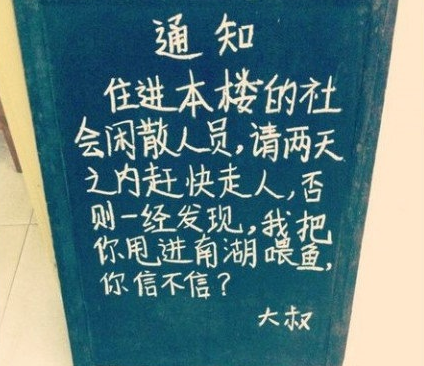 通知
住进本楼的社
会闲散人员，请两天
之内赶快走人，否
则一经发现，我把
你甩进南湖喂鱼，
你信不信？
大叔